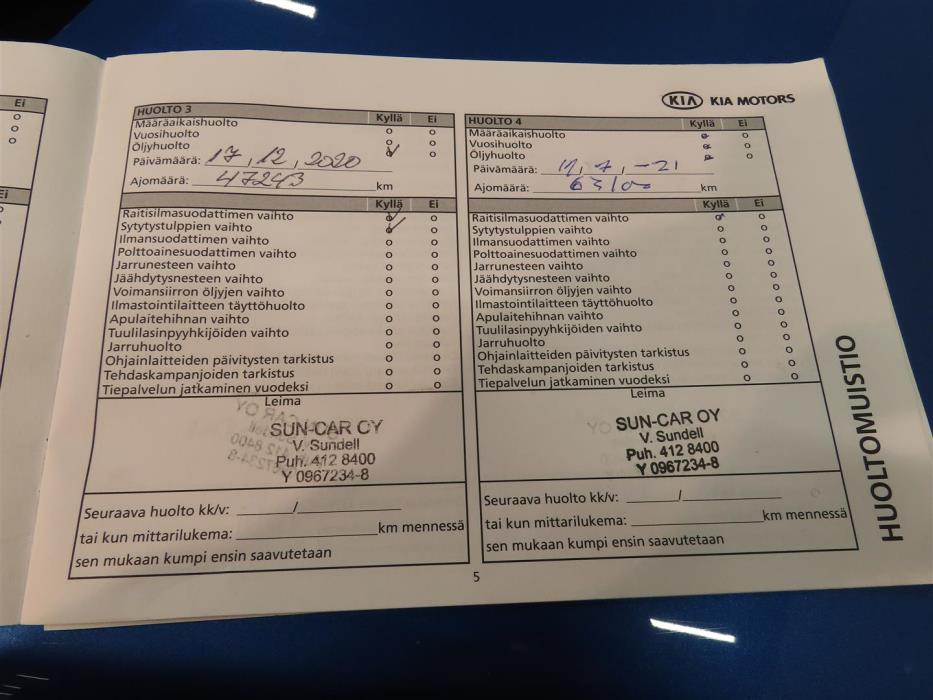 Ei
Ei
KIA KIA MOTORS
HUOLTO 3
Kyllä Ei
Määräaikaishuolto o o
Vuosihuolto o o
Öljyhuolto o o
Päivämäärä: 17, 12, 2020
Ajomäärä: 47243 km
Kyllä Ei
Raitisilmasuodattimen vaihto o o
Sytytystulppien vaihto o o
Ilmansuodattimen vaihto o o
Polttoainesuodattimen vaihto o o
Jarrunesteen vaihto o o
Jäähdytysnesteen vaihto o o
Voimansiirron öljyjen vaihto o o
Ilmastointilaitteen täyttöhuolto o o
Apulaitehihnan vaihto o o
Tuulilasinpyyhkijöiden vaihto o o
Jarruhuolto o o
Ohjainlaitteiden päivitysten tarkistus o o
Tehdaskampanjoiden tarkistus o o
Tiepalvelun jatkaminen vuodeksi o o
Leima
SUN-CAR OY
V. Sundell
Puh. 412 8400
Y 0967234-8
Seuraava huolto kk/v: ______/____________
tai kun mittarilukema: ________________km mennessä
sen mukaan kumpi ensin saavutetaan
HUOLTO 4
Kyllä Ei
Määräaikaishuolto o o
Vuosihuolto o o
Öljyhuolto o o
Päivämäärä: 7, -21
Ajomäärä: km
Kyllä Ei
Raitisilmasuodattimen vaihto o o
Sytytystulppien vaihto o o
Ilmansuodattimen vaihto o o
Polttoainesuodattimen vaihto o o
Jarrunesteen vaihto o o
Jäähdytysnesteen vaihto o o
Voimansiirron öljyjen vaihto o o
Ilmastointilaitteen täyttöhuolto o o
Apulaitehihnan vaihto o o
Tuulilasinpyyhkijöiden vaihto o o
Jarruhuolto o o
Ohjainlaitteiden päivitysten tarkistus o o
Tehdaskampanjoiden tarkistus o o
Tiepalvelun jatkaminen vuodeksi o o
Leima
SUN-CAR OY
V. Sundell
Puh. 412 8400
Y 0967234-8
Seuraava huolto kk/v: ______/____________
tai kun mittarilukema: ________________km mennessä
sen mukaan kumpi ensin saavutetaan
HUOLTOMUISTIO
5